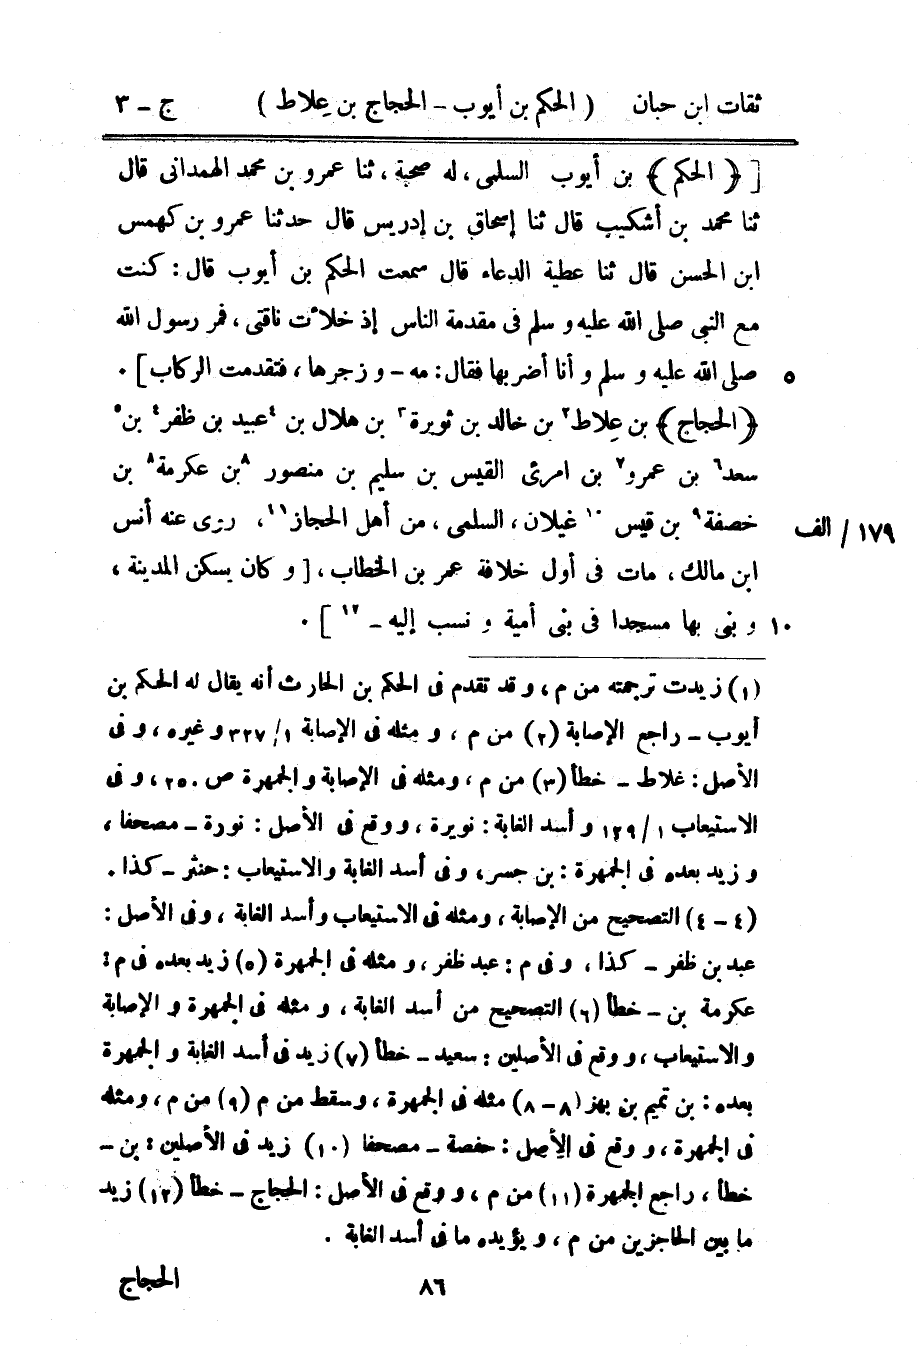 ثقات ابن حبان ( الحكم بن أيوب - الحجاج بن عِلاط ) ج - ٣
[ ﴿ الحكم ﴾ بن أيوب السلمى ، له صحبة ، ثنا عمرو بن محمد الهمدانى قال
ثنا محمد بن أشكيب قال ثنا إسحاق بن إدريس قال حدثنا عمرو بن كهمس
ابن الحسن قال ثنا عطية الدعاء قال سمعت الحكم بن أيوب قال : كنت
مع النبى صلى الله عليه و سلم فى مقدمة الناس إذ خلأت ناقتى ، فمر رسول الله
٥ صلى الله عليه و سلم و أنا أضربها فقال : مه - و زجرها ، فتقدمت الركاب ] .
﴿ الحجاج ﴾ بن عِلاط٢ بن خالد بن ثويرة٣ بن هلال بن ٤عبيد بن ظفر٤ بن٥
سعد٦ بن عمرو٧ بن امرئ القيس بن سليم بن منصور ٨بن عكرمة٨ بن
١٧٩ / الف خصفة٩ بن قيس ١٠ غيلان ، السلمى ، من أهل الحجاز١١ ، روى عنه أنس
ابن مالك ، مات فى أول خلافة عمر بن الخطاب ، [ و كان يسكن المدينة ،
١٠ و بنى بها مسجدا فى بنى أمية و نسب إليه - ١٢ ] .
(١) زيدت ترجمته من م ، و قد تقدم فى الحكم بن الحارث أنه يقال له الحكم بن
أيوب - راجع الإصابة (٢) من م ، و مثله فى الإصابة ١/ ٣٢٧ و غيره ، و فى
الأصل : غلاط - خطأ (٣) من م ، ومثله فى الإصابة و الجمهرة ص ٢٥٠ ، و فى
الاستيعاب ١/ ١٢٩ و أسد الغابة : نويرة ، و وقع فى الأصل : نورة - مصحفا ،
و زيد بعده فى الجمهرة : بن جسر ، و فى أسد الغابة والاستيعاب : حنثر - كذا .
(٤ - ٤) التصحيح من الإصابة ، ومثله فى الاستيعاب وأسد الغابة ، وفى الأصل :
عبد بن ظفر - كذا ، و فى م : عبد ظفر ، و مثله فى الجمهرة (٥) زيد بعده فى م :
عكرمة بن - خطأ (٦) التصحيح من أسد الغابة ، و مثله فى الجمهرة و الإصابة
و الاستيعاب ، و وقع فى الأصلين : سعيد - خطأ (٧) زيد فى أسد الغابة و الجمهرة
بعده : بن تميم بن بهز (٨ - ٨) مثله فى الجمهرة ، وسقط من م (٩) من م ، ومثله
فى الجمهرة ، و وقع فى الأصل : حفصة - مصحفا (١٠) زيد فى الأصلين : بن -
خطأ ، راجع الجمهرة (١١) من م ، و وقع فى الأصل : الحجاج - خطأ (١٢) زيد
ما بين الحاجزين من م ، و يؤيده ما فى أسد الغابة .
٨٦ الحجاج